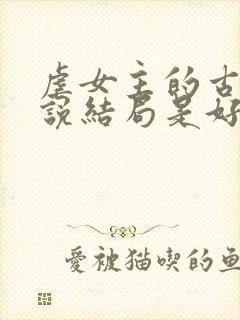 虐女主的古
說結局是好
愛被猫喫的魚